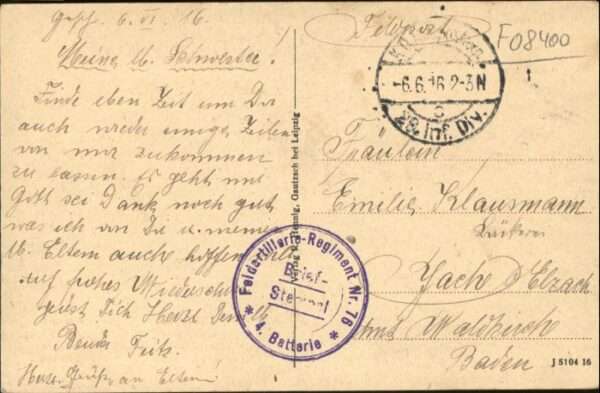 Gesch. 6. VI. 16
Meine lb. Schwester!
Finde eben Zeit um Dir
auch wieder einige Zeilen
von mir zukommen
zu lassen. Es geht mir
Gott sei Dank noch gut
was ich von Dir u. meine
lb. Eltern auch hoffen
auf frohes Wiedersehen
grüsst Dich Herzl. Dein lb.
Bruder Fritz.
Herz. Grüße an Eltern!
Verlag R. Hennig, Gautzsch bei Leipzig
Feldartillerie-Regiment Nr. 76
Brief-
Stempel
* 4. Batterie *
Feldpost
F08400
-6.6.16.2-3N
c
28. Inf. Div.
Fräulein
Emilie Klausmann
Bäckerei
Jach b/Elzach
Amt Waldkirch
Baden
J 5104 16